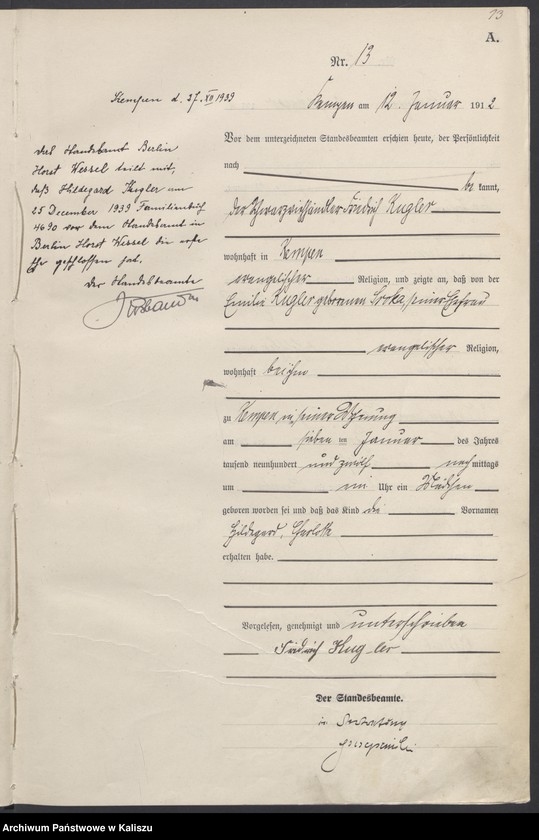 13
A.
Nr. 13
Kempen am 12. Januar 1912
Vor dem unterzeichneten Standesbeamten erschien heute, der Persönlichkeit
nach
be kannt,
der Schwarzviehhändler Friedrich Kugler
wohnhaft in Kempen
evangelischer Religion, und zeigte an, daß von der
Emilie Kugler geborenen Sroka, seiner Ehefrau
evangelischer Religion,
wohnhaft bei ihm
zu Kempen in seiner Wohnung
am sieben ten Januar des Jahres
tausend neunhundert und zwölf nach mittags
um Uhr ein Mädchen
geboren worden sei und daß das Kind die Vornamen
Hildegard, Charlotte
erhalten habe.
Vorgelesen, genehmigt und unterschrieben
Friedrich Kugler
Der Standesbeamte.
in Vertretung
Kempen d. 27. XII 1939
Das Standesamt Berlin
Horst Wessel teilt mit,
daß Hildegard Kugler am
25 December 1939 Familienbuch
4690 vor dem Standesamt in
Berlin Horst Wessel die erste
Ehe geschlossen hat.
Der Standesbeamte
Archiwum Państwowe w Kaliszu